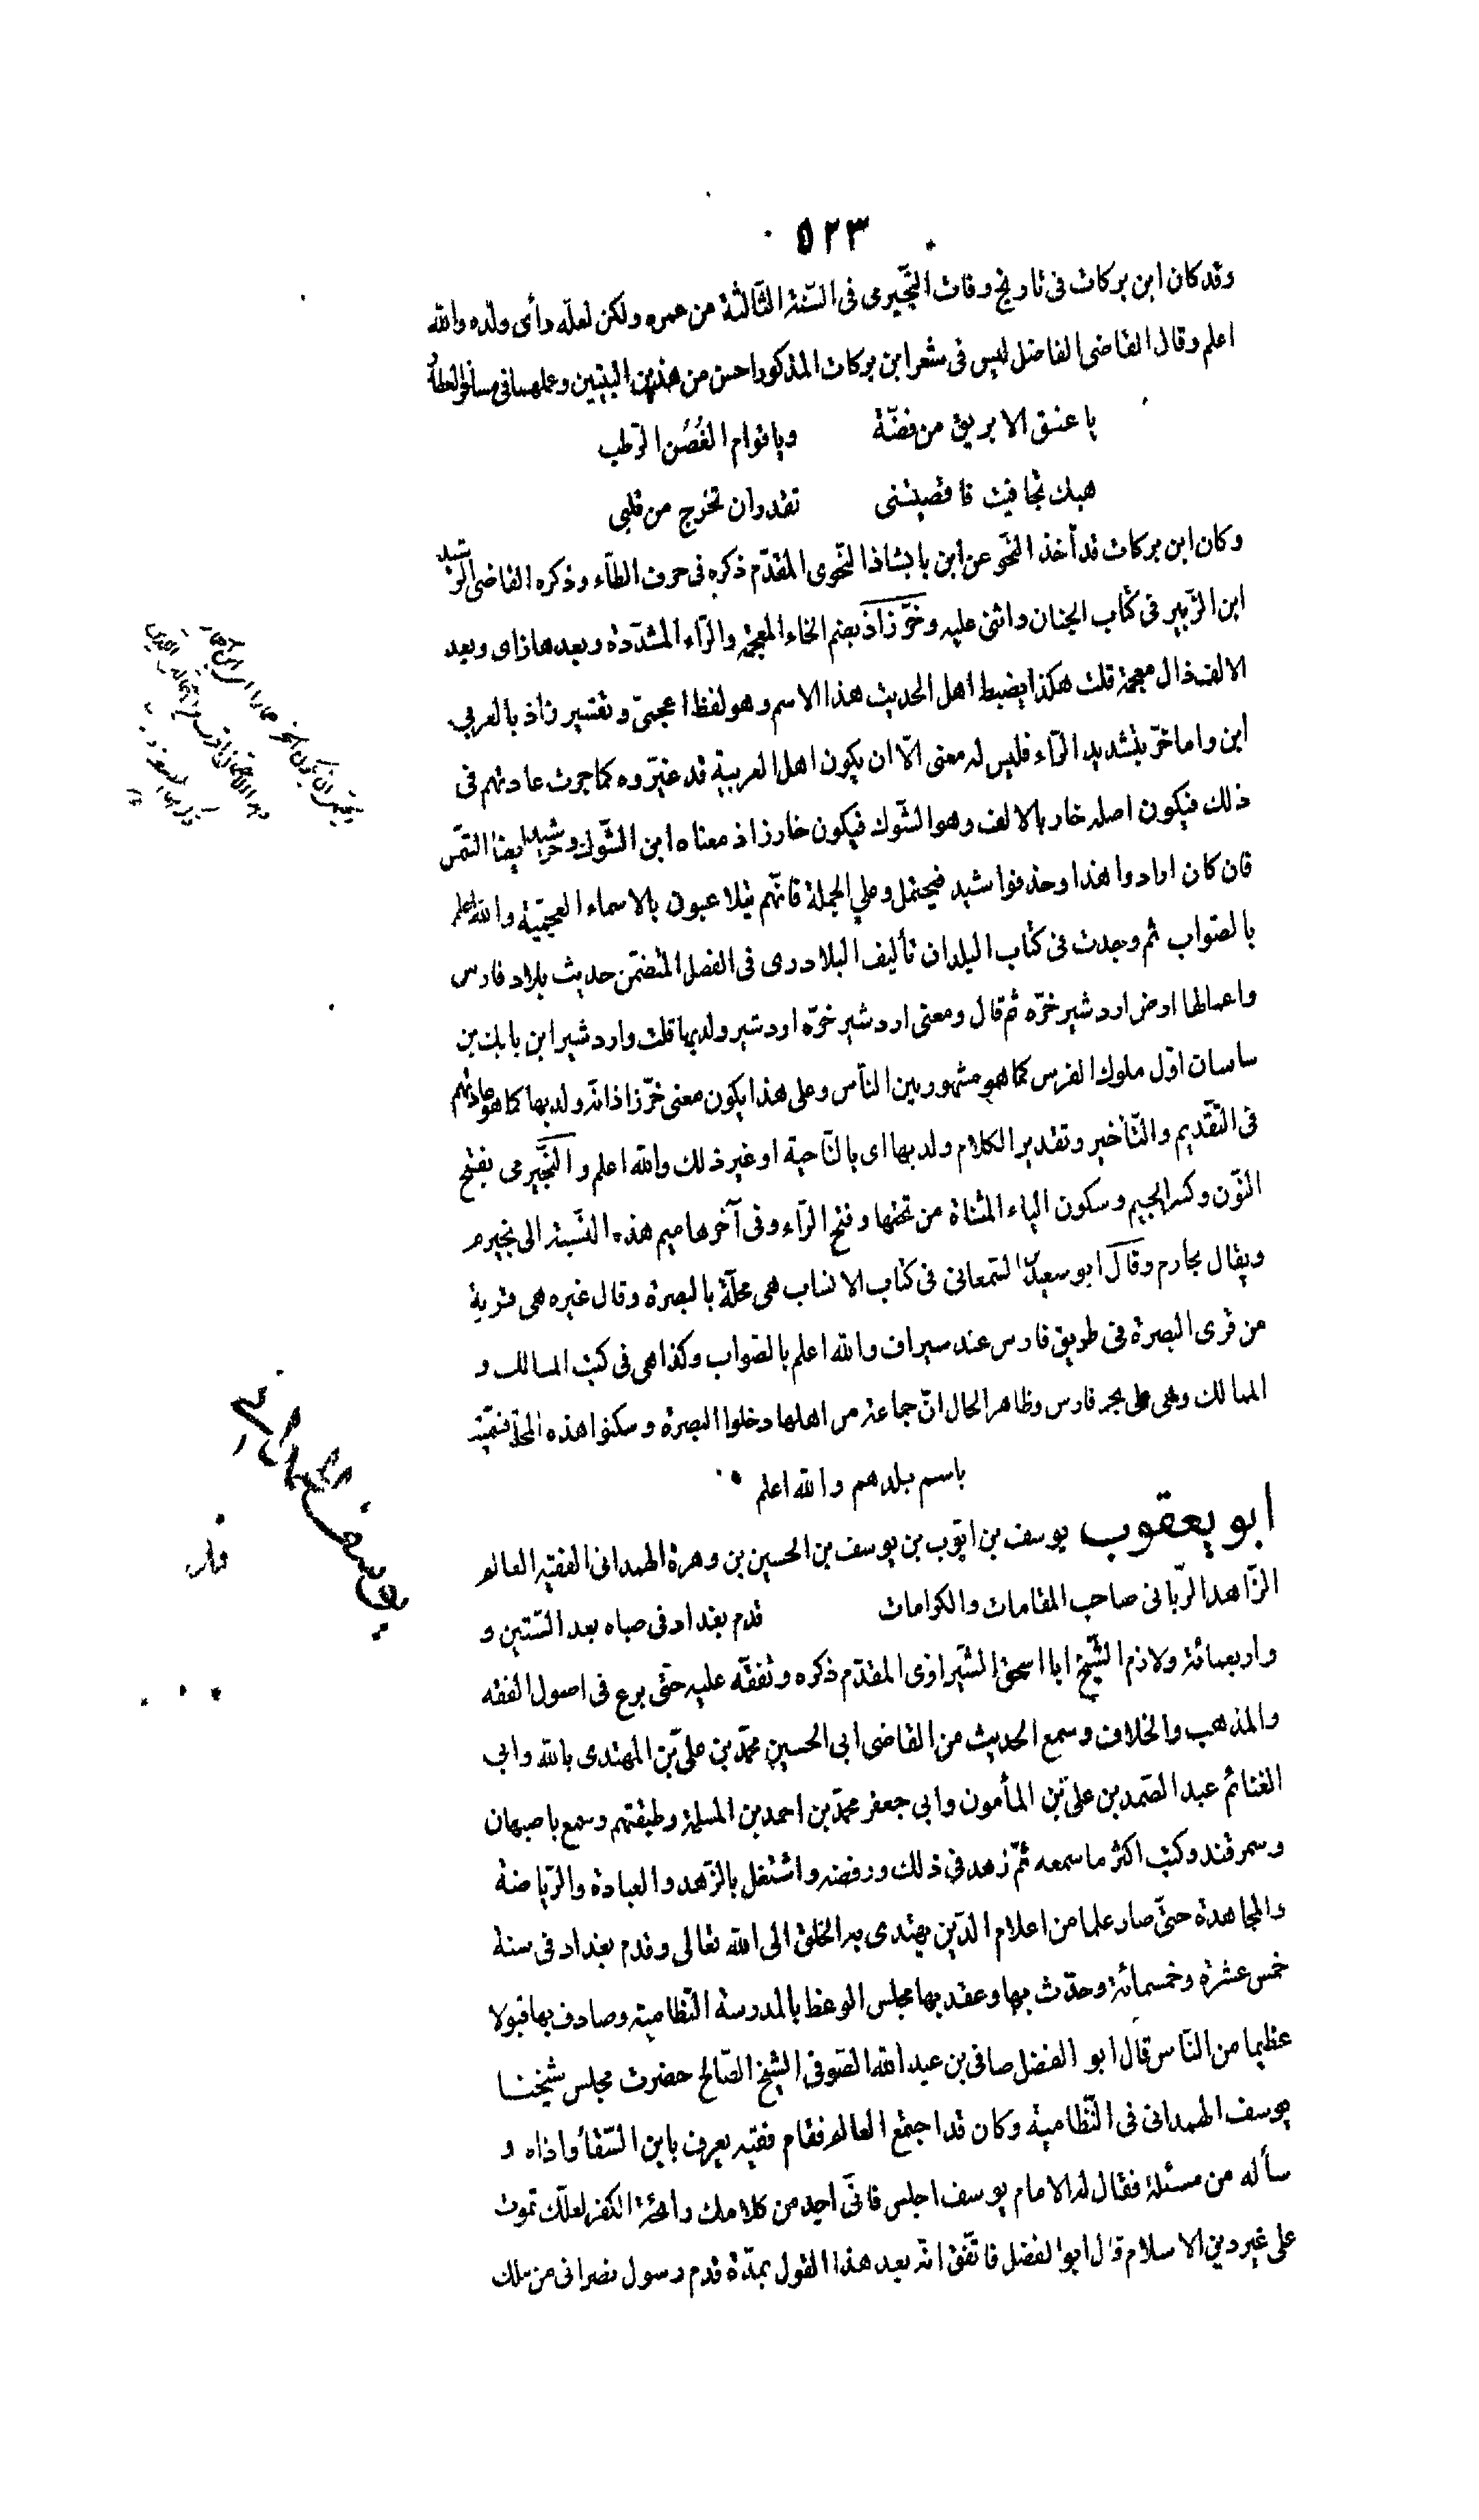 ٥٢٣
وقد كان ابن بركات فى تاريخ وفات النّجيرمى فى السّنة الثّالثة من عمره ولكن لعلّه رأى ولده والله
اعلم وقال القاضى الفاضل ليس فى شعر ابن بركات المذكور احسن من هذين البيتين وعملهما فى
يا عنق الابريق من فضّة ويا قوام الغُصُن الرّطب
هبك تجافيت فاقصيتنى تقدر ان تخرج من قلبى
وكان ابن بركات قد أخذ النّحو عن ابن بابشاذ النّحوى المقدّم ذكره فى حرف الطّاء وذكره القاضى الرّشيد
ابن الزّبير فى كتاب الجنان واثنى عليه وخرّزاذ بضم الخاء المعجمة والرّاء المشدّدة وبعدها زاى وبعد
الالف ذال معجمة قلت هكذا يضبط اهل الحديث هذا الاسم وهو لفظ اعجمىّ وتفسير زاذ بالعربى
ابن واما خرّ بتشديد الرّاء فليس له معنى الّا ان يكون اهل العربية قد غيّروه كما جرت عادتهم فى
ذلك فيكون اصله خار بالالف وهو الشّوك فيكون خارزاذ معناه ابن الشّوك وخرشيد ايضا الشّمس
فان كان ارادوا هذا وحذفوا شيد فيحتمل وعلى الجملة فانّهم يتلاعبون بالاسماء العجميّة والله اعلم
بالصّواب ثم وجدت فى كتاب البلدان تأليف البلاذرى فى الفصل المتضمّن حديث بلاد فارس
واعمالها ارض اردشير خرّه ثم قال ومعنى اردشير خرّه اردشير ولد بها قلت واردشير ابن بابك بن
ساسان اوّل ملوك الفرس كما هو مشهور بين النّاس وعلى هذا يكون معنى خرّزاذ انّه ولد بها كما هو عادتهم
فى التّقديم والتّأخير وتقدير الكلام ولد بها اى بالنّاحية او غير ذلك والله اعلم والنَّجيرمى بفتح
النّون وكسر الجيم وسكون الياء المثناة من تحتها وفتح الرّاء وفى آخرها ميم هذه النّسبة الى نجيرم
ويقال نجارم وقال ابو سعيد السّمعانى فى كتاب الانساب هى محلّة بالبصرة وقال غيره هى قرية
من قرى البصرة فى طريق فارس عند سيراف والله اعلم بالصّواب وكذا هى فى كتب المسالك و
الممالك وهى على بحر فارس وظاهر الحال انّ جماعة من اهلها دخلوا البصرة وسكنوا هذه المحلّة فسمّيت
باسم بلدهم والله اعلم
ابو يعقوب يوسف بن ايّوب بن يوسف بن الحسين بن وهرة الهمدانى الفقيه العالم
الزّاهد الرّبّانى صاحب المقامات والكرامات قدم بغداد فى صباه بعد السّتين و
واربعمائة ولازم الشّيخ ابا اسحق الشّيرازى المقدّم ذكره وتفقّه عليه حتّى برع فى اصول الفقه
والمذهب والخلاف وسمع الحديث من القاضى ابى الحسين محمّد بن علىّ بن المهتدى بالله وابى
الغنائم عبد الصّمد بن علىّ بن المأمون وابى جعفر محمّد بن احمد بن المسلمة وطبقتهم وسمع باصبهان
وسمرقند وكتب اكثر ما سمعه ثمّ زهد فى ذلك ورفضه واشتغل بالزّهد والعبادة والرّياضة
والمجاهدة حتّى صار علما من اعلام الدّين يهتدى به الخلق الى الله تعالى وقدم بغداد فى سنة
خمس عشرة وخمسمائة وحدّث بها وعقد بها مجلس الوعظ بالمدرسة النّظامية وصادف بها قبولا
عظيما من النّاس قال ابو الفضل صافى بن عبد الله الصّوفى الشّيخ الصّالح حضرت مجلس شيخنا
يوسف الهمدانى فى النّظامية وكان قد اجتمع العالم فقام فقيه يعرف بابن السّقأ واذاه و
سأله من مسئلة فقال له الامام يوسف اجلس فانّى اجد من كلامك رائحة الكفر لعلّك تموت
على غير دين الاسلام قال ابو الفضل فاتّفق انّه بعد هذا القول بمدّة قدم رسول نصرانى من ملك
يوسف الهمدانى